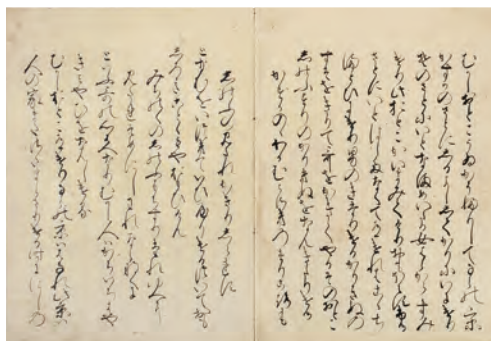 むかしおとこうゐかうふりしてならの京
かすかのさとにしるよしゝてかりにいにけり
そのさとにいとなまめいたる女はらからすみ
けりこのおとこかいまみてけりおもほえすふる
さとにいとはしたなくてありけれはこゝち
まとひにけり男のきたりけるかりきぬの
すそをきりて哥をかきてやるそのおとこ
しのふすりのかりきぬをなんきたりける
かすかのゝわかむらさきのすり衣
しのふのみたれかきりしられす
となむをいつきていひやりけるついておも
しろきことゝもや思ひけん
みちのくの忍ふもちすりたれゆへに
みたれそめにしわれならなくに
といふ哥の心はへなりむかし人はかくいちはや
きみやひをなんしける
むかしおとこありけりならの京ははなれこの京は
人の家またさたまらさりける時ににしの